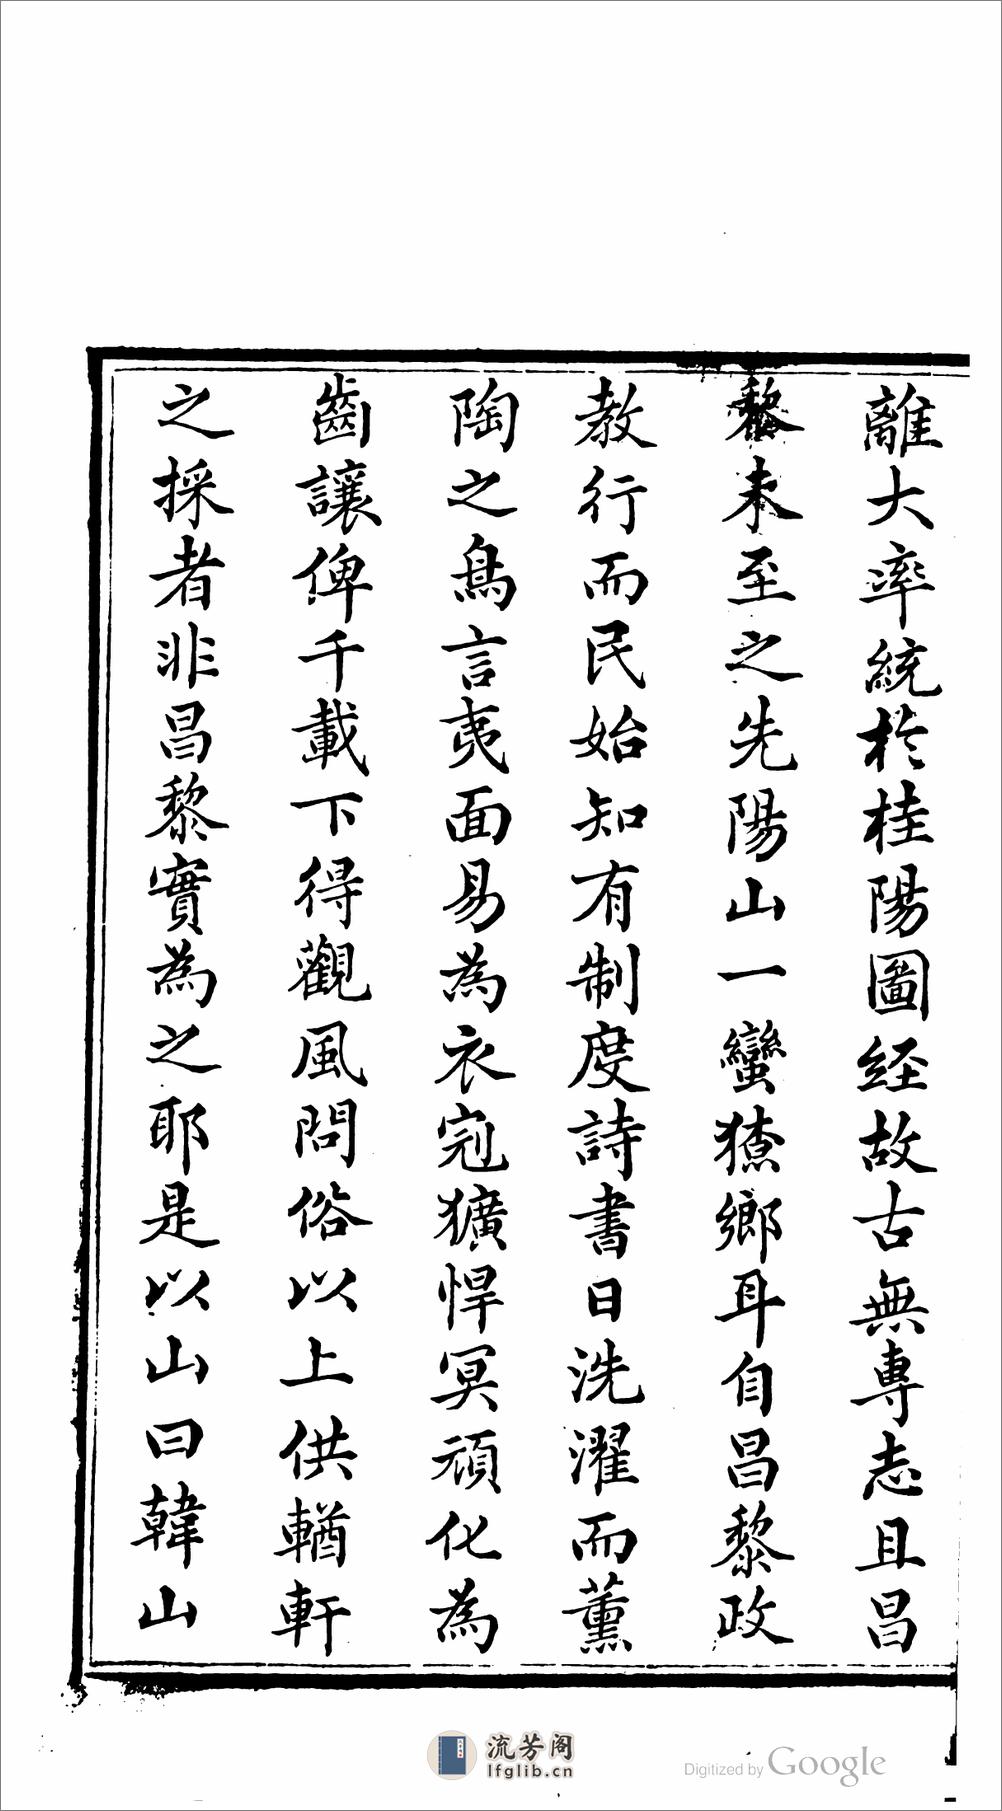 離大率統於桂陽圖経故古無專志且昌
黎未至之先陽山一蠻獠鄉耳自昌黎政
教行而民始知有制度詩書日洗濯而薰
陶之鳥言夷面易為衣冠獷悍冥頑化為
齒讓俾千載下得觀風問俗以上供輶軒
之採者非昌黎實為之耶是以山曰韓山
流芳阁
lfglib.cn
Digitized by Google